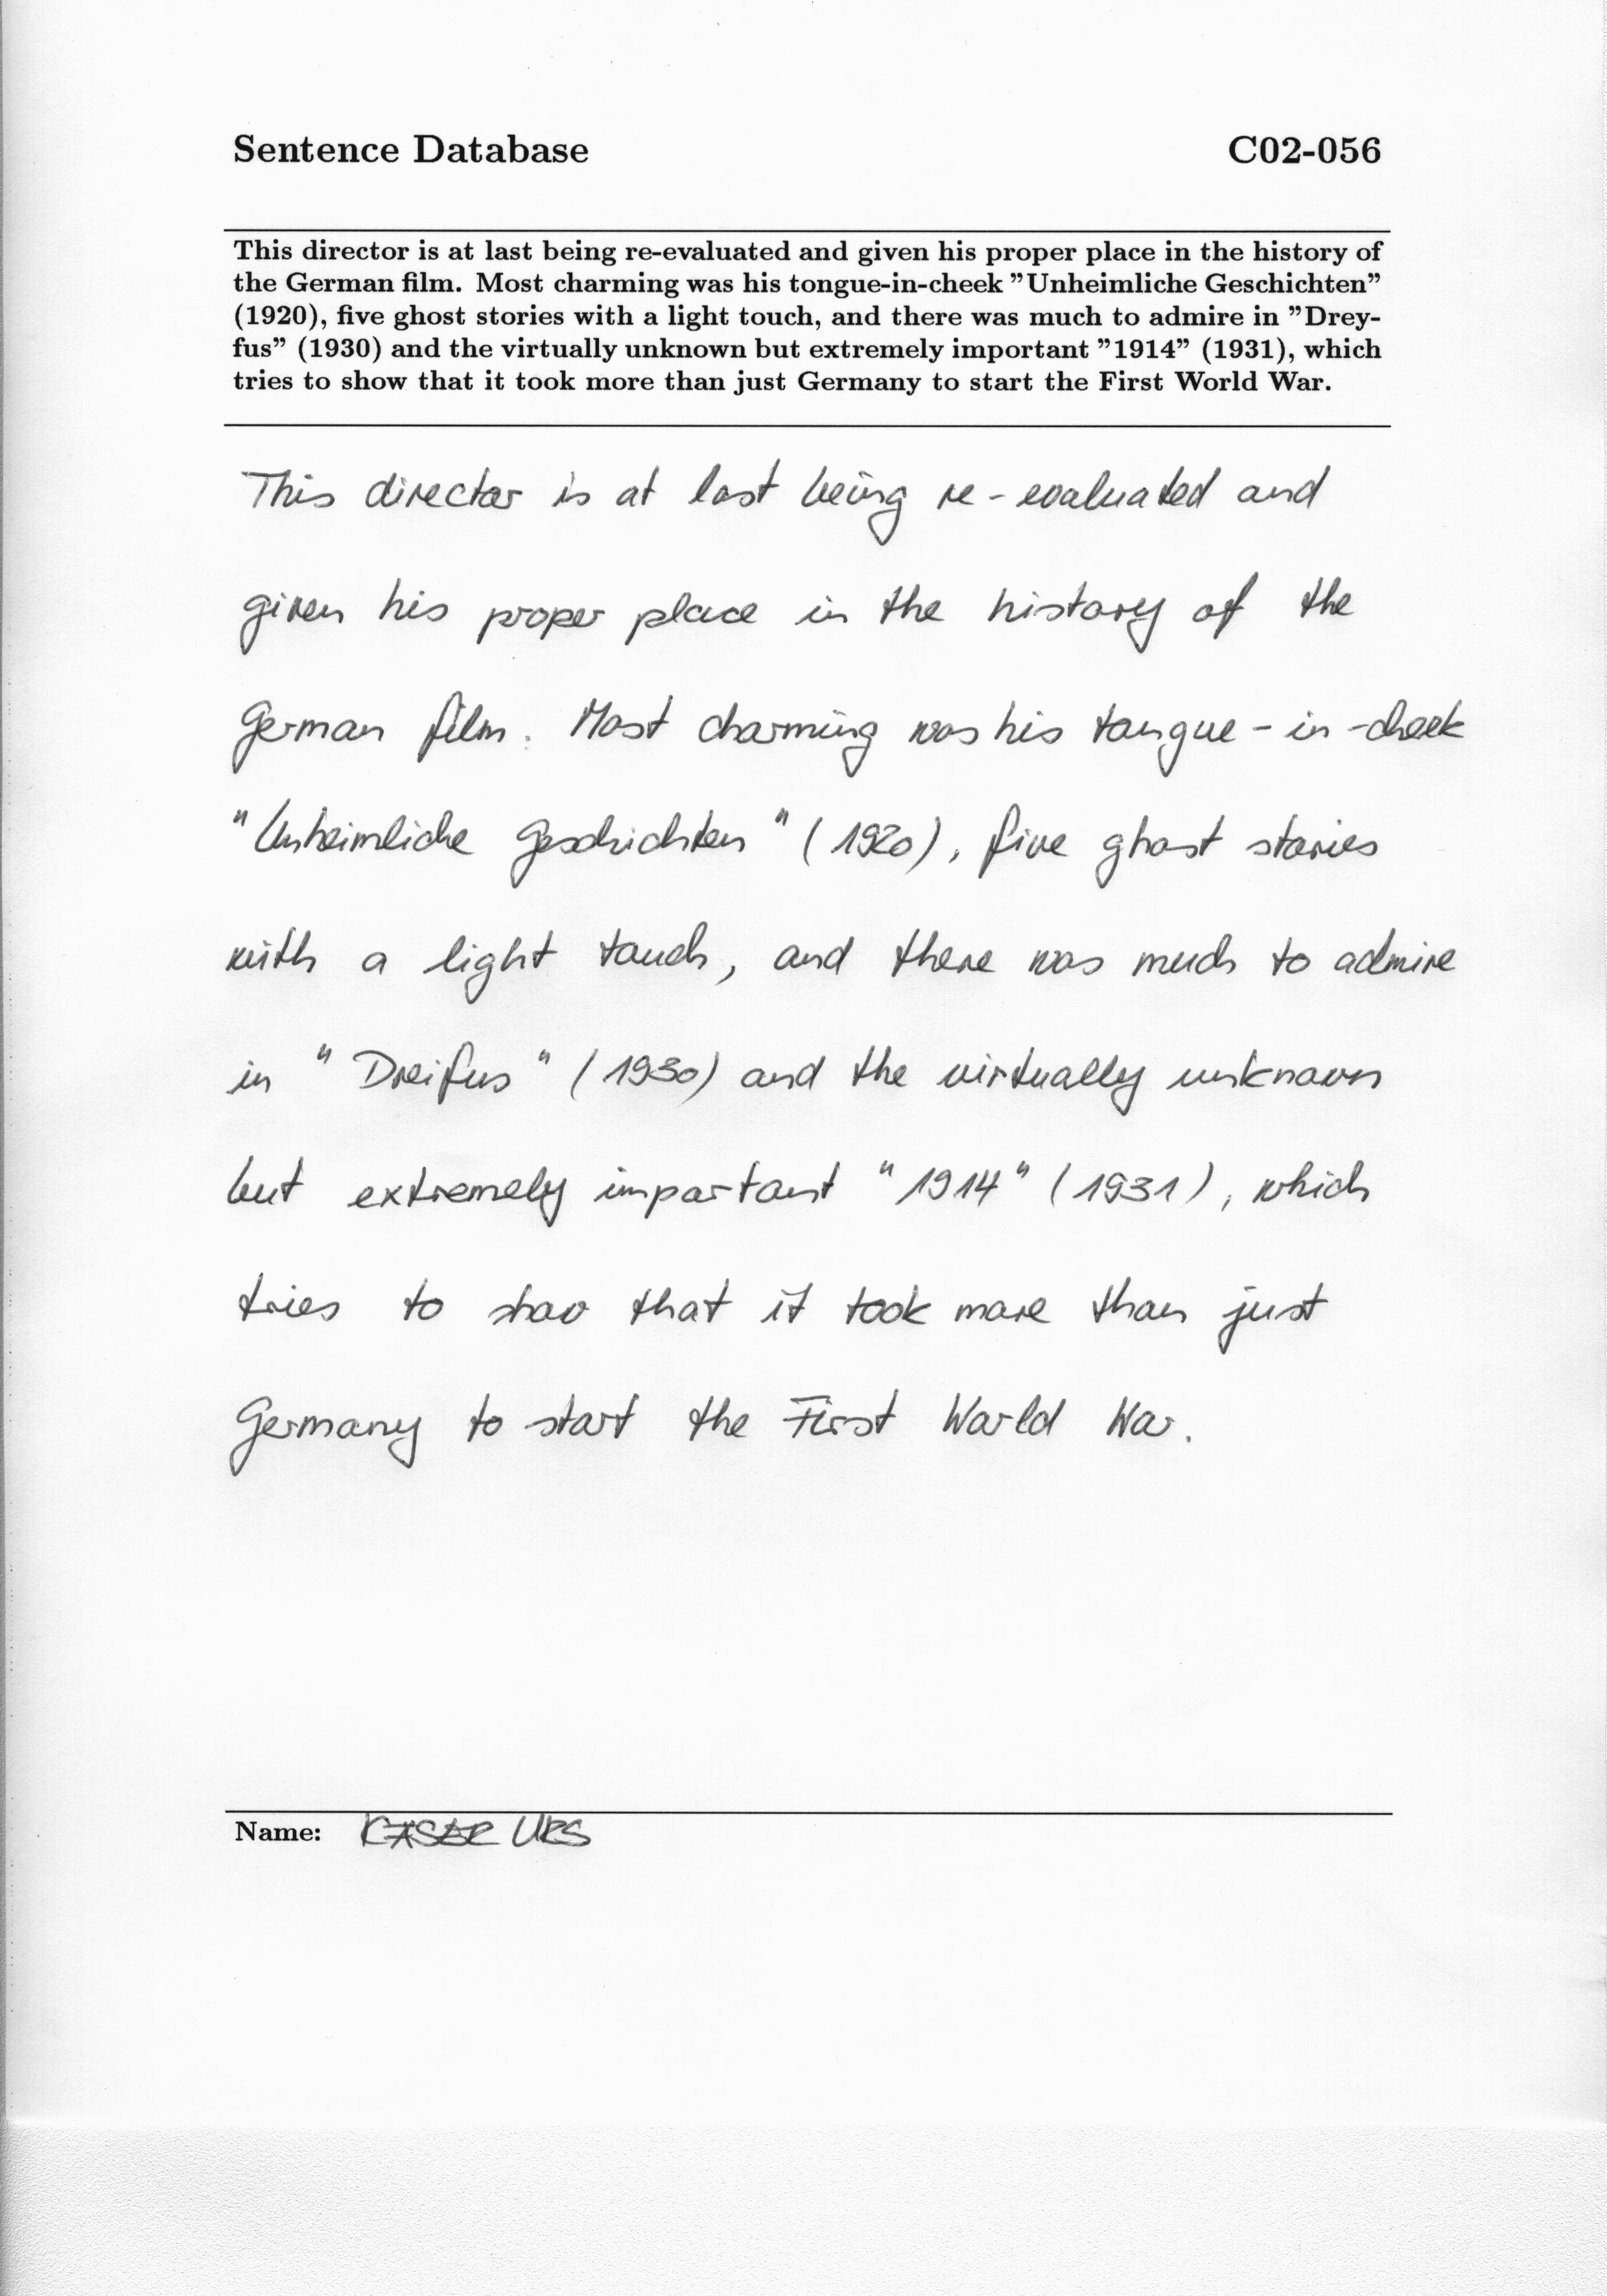 Sentence Database C02-056
This director is at last being re-evaluated and given his proper place in the history of
the German film. Most charming was his tongue-in-cheek "Unheimliche Geschichten"
(1920), five ghost stories with a light touch, and there was much to admire in "Drey-
fus" (1930) and the virtually unknown but extremely important "1914" (1931), which
tries to show that it took more than just Germany to start the First World War.
This director is at last being re-evaluated and
given his proper place in the history of the
German film. Most charming was his tongue-in-cheek
"Unheimliche Geschichten" (1920), five ghost stories
with a light touch, and there was much to admire
in "Dreifus" (1930) and the virtually unknown
but extremely important "1914" (1931), which
tries to show that it took more than just
Germany to start the First World War.
Name: KASER URS